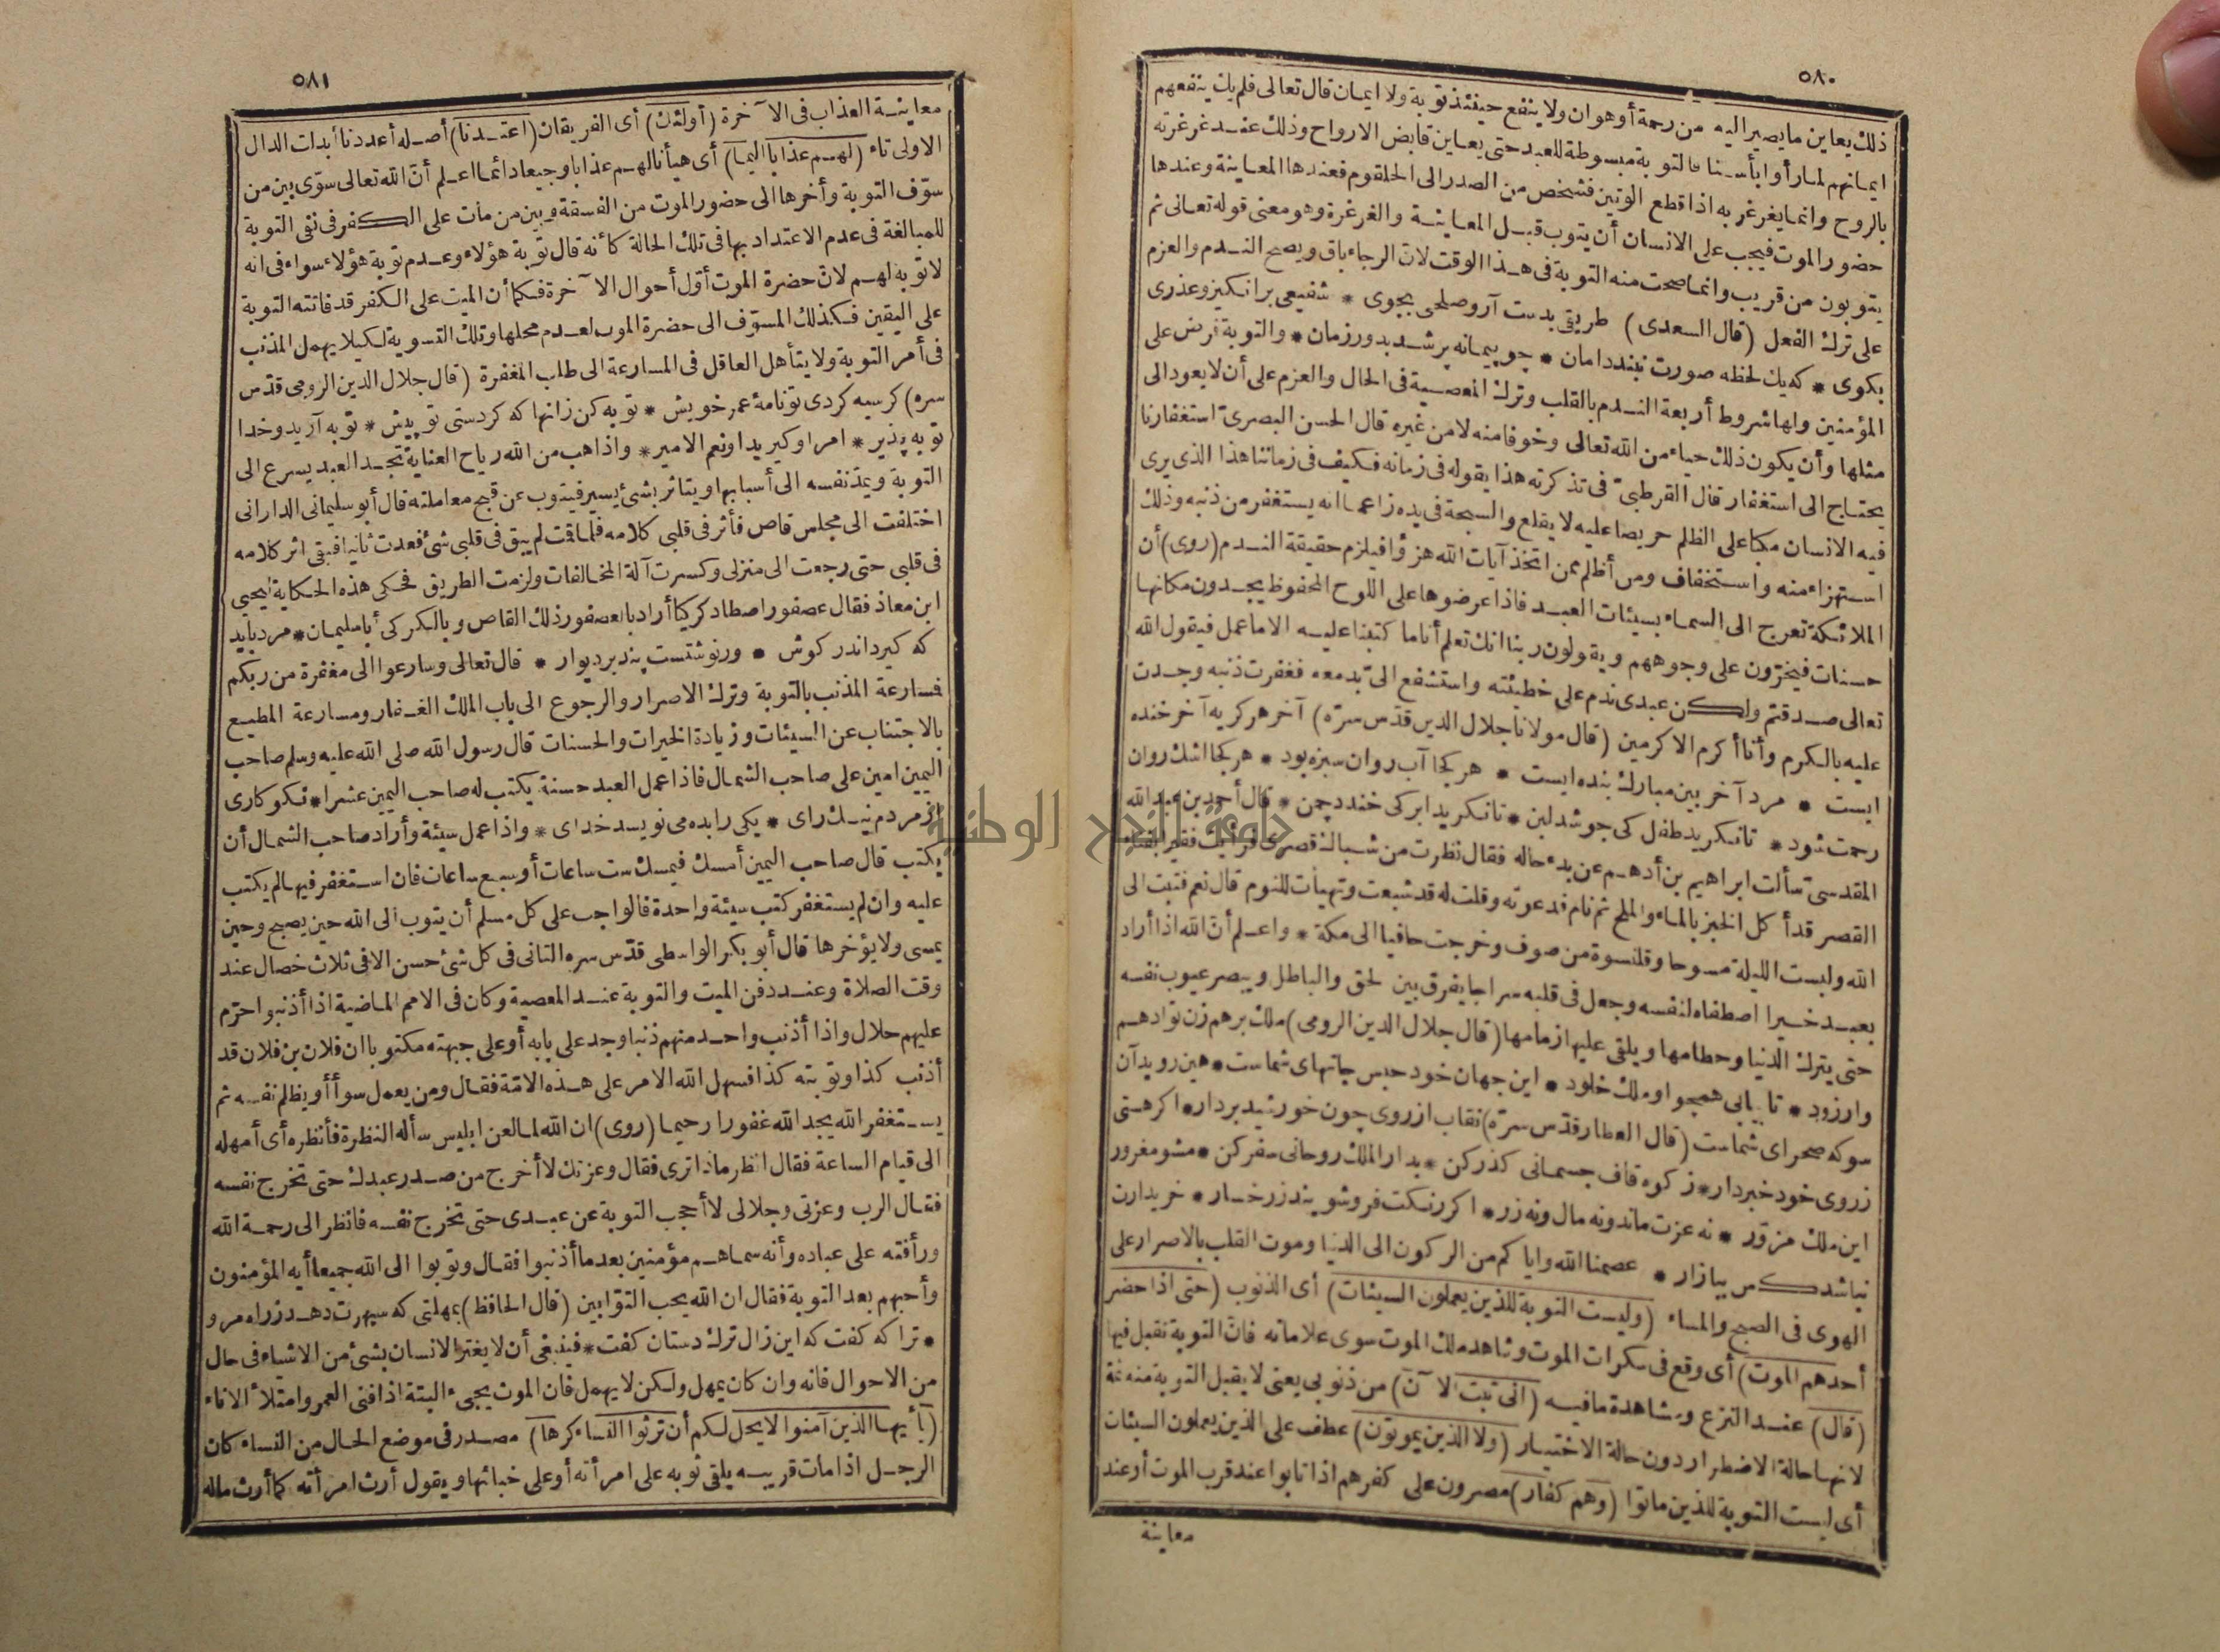 ٥٨٠
ذلك يعاين ما يصير اليه من رحمة أو هوان ولا ينفع حينئذ توبة ولا ايمان قال تعالى فلم يك ينفعهم
ايمانهم لما رأوا بأسنا فالتوبة مبسوطة للعبد حتى يعاين قابض الارواح وذلك عند غرغرته
بالروح وانما يغرغر به اذا قطع الوتين فشخص من الصدر الى الحلقوم فعندها المعاينة وعندها
حضور الموت فيجب على الانسان أن يتوب قبل المعاينة والغرغرة وهو معنى قوله تعالى ثم
يتوبون من قريب وانما صحت منه التوبة فى هذا الوقت لان الرجاء باق ويصح الندم والعزم
على ترك الفعل (قال السعدى) طريقى بدست آر وصلحى بجوى * شفيعى برانكيز وعذرى
بكوى * كه يك لحظه صورت نبندد امان * چو پيمانه پر شد بدور زمان * والتوبة فرض على
المؤمنين ولها شروط أربعة الندم بالقلب وترك المعصية فى الحال والعزم على أن لا يعود الى
مثلها وأن يكون ذلك حياء من الله تعالى وخوفا منه لا من غيره قال الحسن البصرىّ استغفارنا
يحتاج الى استغفار قال القرطبىّ فى تذكرته هذا يقوله فى زمانه فكيف فى زماننا هذا الذى يرى
فيه الانسان مكبا على الظلم حريصا عليه لا يقلع والسبحة فى يده زاعما انه يستغفر من ذنبه وذلك
استهزاء منه واستخفاف ومن أظلم ممن اتخذ آيات الله هزؤا فيلزم حقيقة الندم (روى) أن
الملائكة تعرج الى السماء بسيئات العبد فاذا عرضوها على اللوح المحفوظ يجدون مكانها
حسنات فيخرّون على وجوههم ويقولون ربنا انك تعلم أنا ما كتبنا عليه الا ما عمل فيقول الله
تعالى صدقتم ولكن عبدى ندم على خطيئته واستشفع الىّ بدمعه فغفرت ذنبه وجدت
عليه بالكرم وأنا أكرم الاكرمين (قال مولانا جلال الدين قدّس سرّه) آخر هر كريه آخر خنده
ايست * مرد آخر بين مبارك بنده ايست * هر كجا آب روان سبزه بود * هر كجا اشك روان
رحمت شود * تا نكريد طفل كى جوشد لبن * تا نكريد ابر كى خندد چمن * قال أحمد بن عبد الله
المقدسىّ سألت ابراهيم بن أدهم عن بدء حاله فقال نظرت من شباك قصرى فرأيت فقيرا بفناء
القصر قد أكل الخبز بالماء والملح ثم نام فدعوته وقلت له قد شبعت وتهيأت للنوم قال نعم فتبت الى
الله ولبست الليلة مسوحا وقلنسوة من صوف وخرجت حافيا الى مكة * واعلم أنّ الله اذا أراد
بعبد خيرا اصطفاه لنفسه وجعل فى قلبه سراجا يفرق بين الحق والباطل ويبصر عيوب نفسه
حتى يترك الدنيا وحطامها ويلقى عليها زمامها (قال جلال الدين الرومى) ملك برهم زن تو ادهم
وار زود * تا بيابى همچو او ملك خلود * اين جهان خود حبس جانهاى شماست * هين رويد آن
سو كه صحراى شماست (قال العطار قدّس سرّه) نقاب از روى چون خورشيد بردار * اكر هستى
ز روى خود خبردار * ز كوه قاف جسمانى كذر كن * بدار الملك روحانى سفر كن * مشو مغرور
اين ملك مزوّر * نه عزت ماند و نه مال و نه زر * اكر رنكت فرو شويند ز رخسار * خريدارت
نباشد كس ببازار * عصمنا الله واياكم من الركون الى الدنيا وموت القلب بالاصرار على
الهوى فى الصبح والمساء (وليست التوبة للذين يعملون السيئات) أى الذنوب (حتى اذا حضر
أحدهم الموت) أى وقع فى سكرات الموت وشاهد ملك الموت سوى علاماته فانّ التوبة تقبل فيها
(قال) عند النزع ومشاهدة ما فيه (انى تبت الآن) من ذنوبى يعنى لا يقبل التوبة منه ثمة
لانها حالة الاضطرار دون حالة الاختيار (ولا الذين يموتون) عطف على الذين يعملون السيئات
أى ليست التوبة للذين ماتوا (وهم كفار) مصرون على كفرهم اذا تابوا عند قرب الموت أو عند
معاينة
٥٨١
معاينة العذاب فى الآخرة (أولئك) أى الفريقان (اعتدنا) أصله أعددنا أبدلت الدال
الاولى تاء (لهم عذابا أليما) أى هيأنا لهم عذابا وجيعا دائما اعلم أنّ الله تعالى سوّى بين من
سوّف التوبة وأخرها الى حضور الموت من الفسقة وبين من مات على الكفر فى نفى التوبة
للمبالغة فى عدم الاعتداد بها فى تلك الحالة كأنه قال توبة هؤلاء وعدم توبة هؤلاء سواء فى انه
لا توبة لهم لان حضرة الموت أوّل أحوال الآخرة فكما أن الميت على الكفر قد فاتته التوبة
على اليقين فكذلك المسوّف الى حضرة الموت لعدم محلها وتلك التسوية لكيلا يهمل المذنب
فى أمر التوبة ولا يتأهل العاقل فى المسارعة الى طلب المغفرة (قال جلال الدين الرومى قدّس
سره) كر سيه كردى تو نامهٔ عمر خويش * توبه كن زانها كه كردستى تو پيش * توبه آريد وخدا
توبه پذير * امر او كيريد او نعم الامير * واذا هب من الله رياح العناية تجد العبد يسرع الى
التوبة ويمدّ نفسه الى أسبابها ويتاثر بشئ يسير فيتوب عن قبح معاملته قال أبو سليمانى الدارانى
اختلفت الى مجلس قاص فأثر فى قلبى كلامه فلما قت لم يبق فى قلبى شئ فعدت ثانيا فبقى اثر كلامه
فى قلبى حتى رجعت الى منزلى وكسرت آلة المخالفات ولزمت الطريق فحكى هذه الحكاية ليحيى
ابن معاذ فقال عصفور اصطاد كركيا أراد بالعصفور ذلك القاص وبالكركى أبا سليمان * مرد بايد
كه كيرد اندر كوش * ور نوشتست پند بر ديوار * قال تعالى وسارعوا الى مغفرة من ربكم
فسارعة المذنب بالتوبة وترك الاصرار والرجوع الى باب الملك الغفار ومسارعة المطيع
بالاجتناب عن السيئات وزيادة الخيرات والحسنات قال رسول الله صلى الله عليه وسلم صاحب
اليمين امين على صاحب الشمال فاذا عمل العبد حسنة يكتب له صاحب اليمين عشرا * نكو كارى
از مردم نيك راى * يكى را بده مى نويسد خداى * واذا عمل سيئة وأراد صاحب الشمال أن
يكتب قال صاحب اليمين أمسك فيمسك ست ساعات أو سبع ساعات فان استغفر فيها لم يكتب
عليه وان لم يستغفر كتب سيئة واحدة قالواجب على كل مسلم أن يتوب الى الله حين يصبح وحين
يمسى ولا يؤخرها قال أبو بكر الواسطى قدّس سره التانى فى كل شئ حسن الا فى ثلاث خصال عند
وقت الصلاة وعند دفن الميت والتوبة عند المعصية وكان فى الامم الماضية اذا أذنبوا حرّم
عليهم حلال واذا أذنب واحد منهم ذنبا وجد على بابه أو على جبهته مكتوبا ان فلان بن فلان قد
أذنب كذا وتوبته كذا فسهل الله الامر على هذه الامّة فقال ومن يعمل سوأ أو يظلم نفسه ثم
يستغفر الله يجد الله غفورا رحيما (روى) ان الله لما لعن ابليس سأله النظرة فأنظره أى أمهله
الى قيام الساعة فقال انظر ماذا ترى فقال وعزتك لا أخرج من صدر عبدك حتى تخرج نفسه
فقال الرب وعزتى وجلالى لا أحجب التوبة عن عبدى حتى تخرج نفسه فانظر الى رحمة الله
ورأفته على عباده وأنه سماهم مؤمنين بعدما أذنبوا فقال وتوبوا الى الله جميعا أيه المؤمنون
وأحبهم بعد التوبة فقال ان الله يحب التوّابين (قال الحافظ) بمهلتى كه سپهرت دهد ز راه مرو
* ترا كه كفت كه اين زال ترك دستان كفت * فينبغى أن لا يغتر الانسان بشئ من الاشياء فى حال
من الاحوال فانه وان كان يمهل ولكن لا يهمل فان الموت يجىء البتة اذا فنى العمر وامتلأ الاناء
(يأيها الذين آمنوا لا يحل لكم أن ترثوا النساء كرها) مصدر فى موضع الحال من النساء كان
الرجل اذا مات قريبه يلقى ثوبه على امرأته أو على خبائها ويقول أرث امرأته كما أرث ماله
جامعة النجاح الوطنية